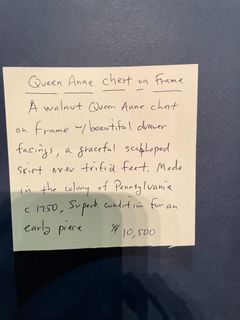 Queen Anne chest on Frame
A walnut Queen Anne chest
on frame w/beautiful drawer
facings, a graceful scalloped
skirt over trifid feet. Made
in the colony of Pennsylvania
c 1750, Superb condition for an
early piece $10,500